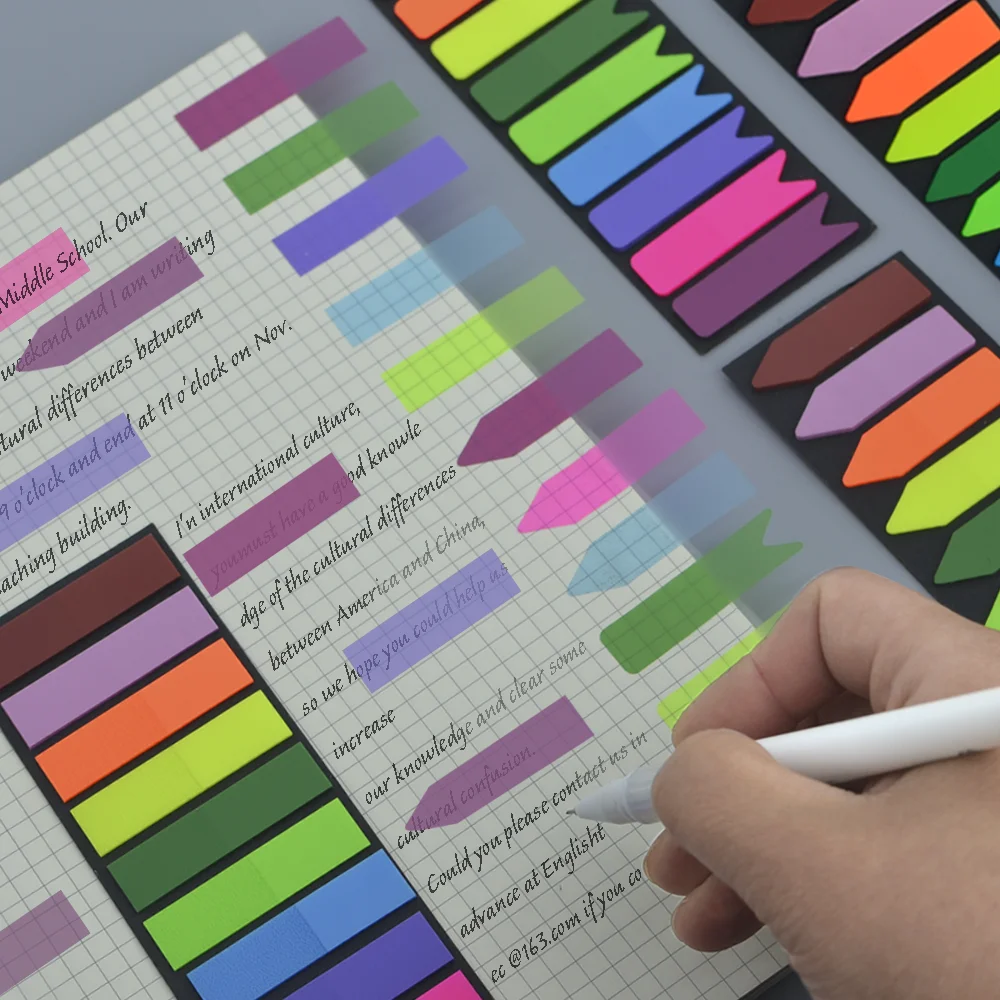 Middle School. Our
weekend and I am writing
tural differences between
9 o'clock and end at 11 o'clock on Nov.
aching building.
I'n international culture,
youmust have a good knowle
dge of the cultural differences
between America and China,
so we hope you could help us
increase
our knowledge and clear some
cultural confusion.
Could you please contact us in
advance at Englisht
ec @163.com if you co